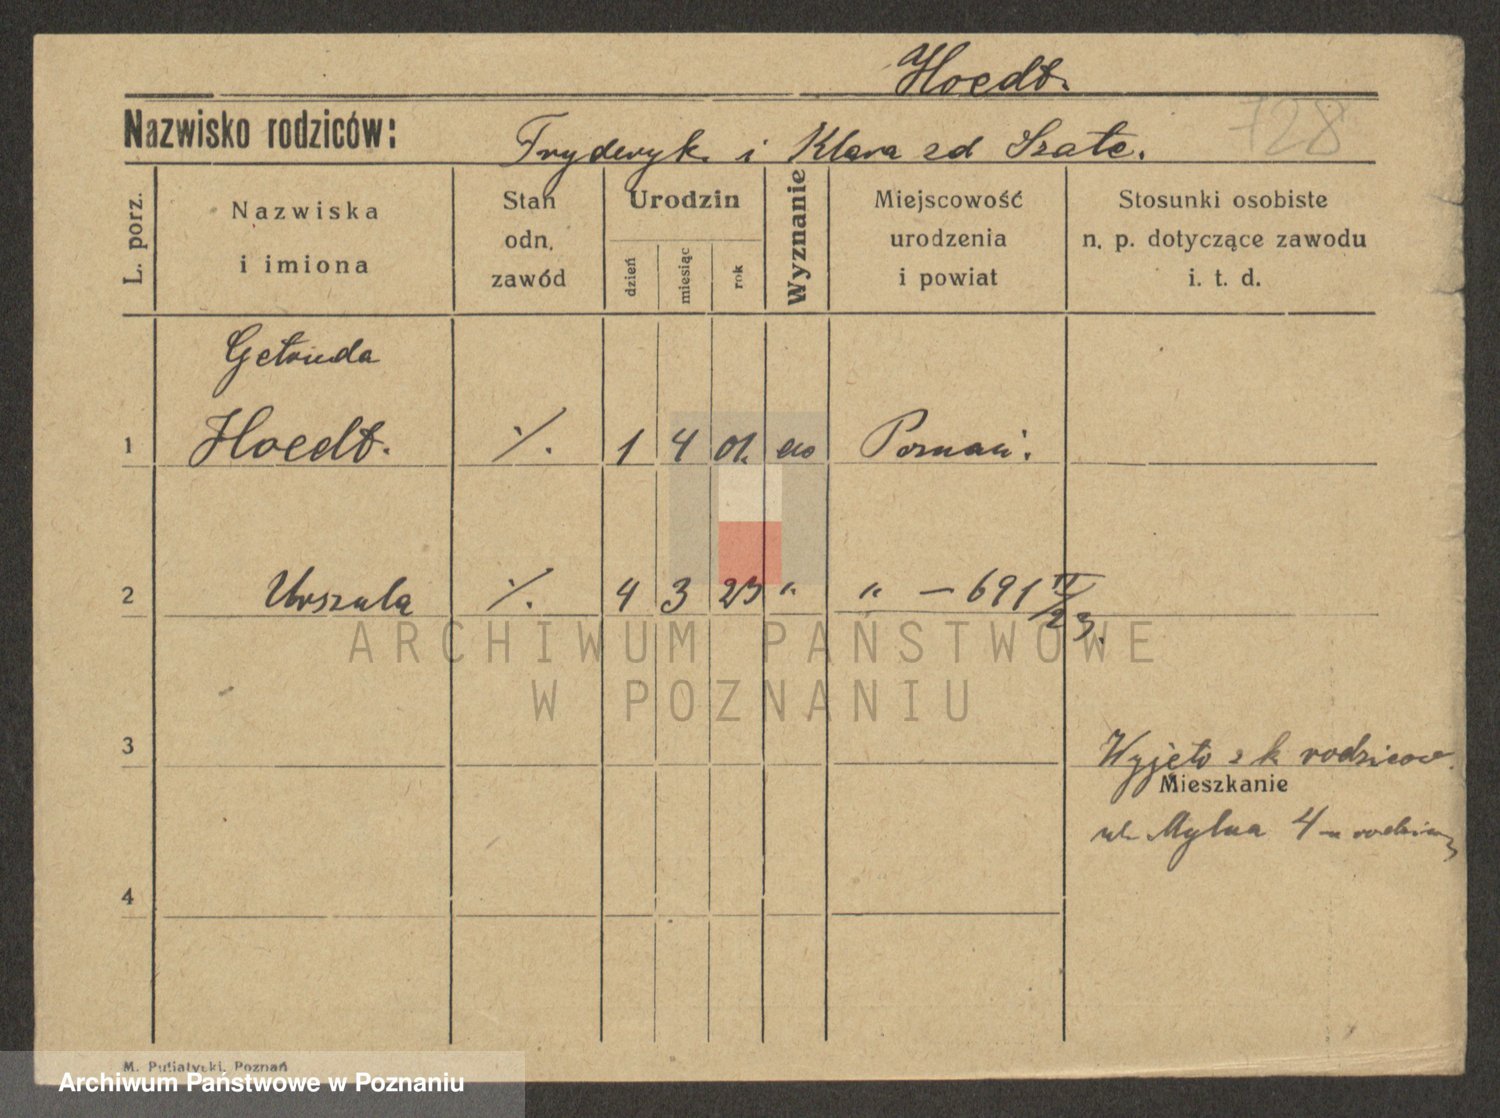 Hoedt.
728
Nazwisko rodziców: Fryderyk i Klara zd Szatc.
L. porz.
Nazwiska i imiona
Stan odn. zawód
Urodzin
dzień
miesiąc
rok
Wyznanie
Miejscowość urodzenia i powiat
Stosunki osobiste n. p. dotyczące zawodu i. t. d.
Getruda
1 Hoedt. %. 1 4 01. Poznań.
2 Urszula %. 4 3 23 " " — 691 II/23.
ARCHIWUM PAŃSTWOWE
W POZNANIU
3 Wyjęto z k rodziców.
Mieszkanie
ul. Mylna 4
4
M. Putiatycki, Poznań
Archiwum Państwowe w Poznaniu